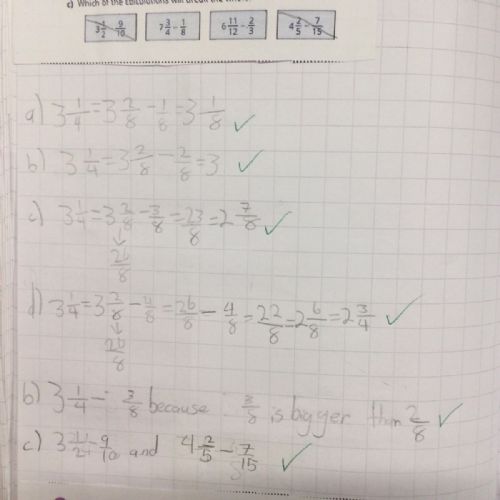 c) Which of the calculations will break the whole?
3 1/2 - 9/10 7 3/4 - 1/8 6 11/12 - 2/3 4 2/5 - 7/15
a) 3 1/4 = 3 2/8 - 1/8 = 3 1/8 ✓
b) 3 1/4 = 3 2/8 - 2/8 = 3 ✓
c) 3 1/4 = 3 2/8 - 3/8 = 23/8 = 2 7/8 ✓
↓
26/8
d) 3 1/4 = 3 2/8 - 4/8 = 26/8 - 4/8 = 22/8 = 2 6/8 = 2 3/4 ✓
↓
26/8
b) 3 1/4 - 3/8 because 3/8 is bigger than 2/8 ✓
c) 3 1/2 - 9/10 and 4 2/5 - 7/15 ✓